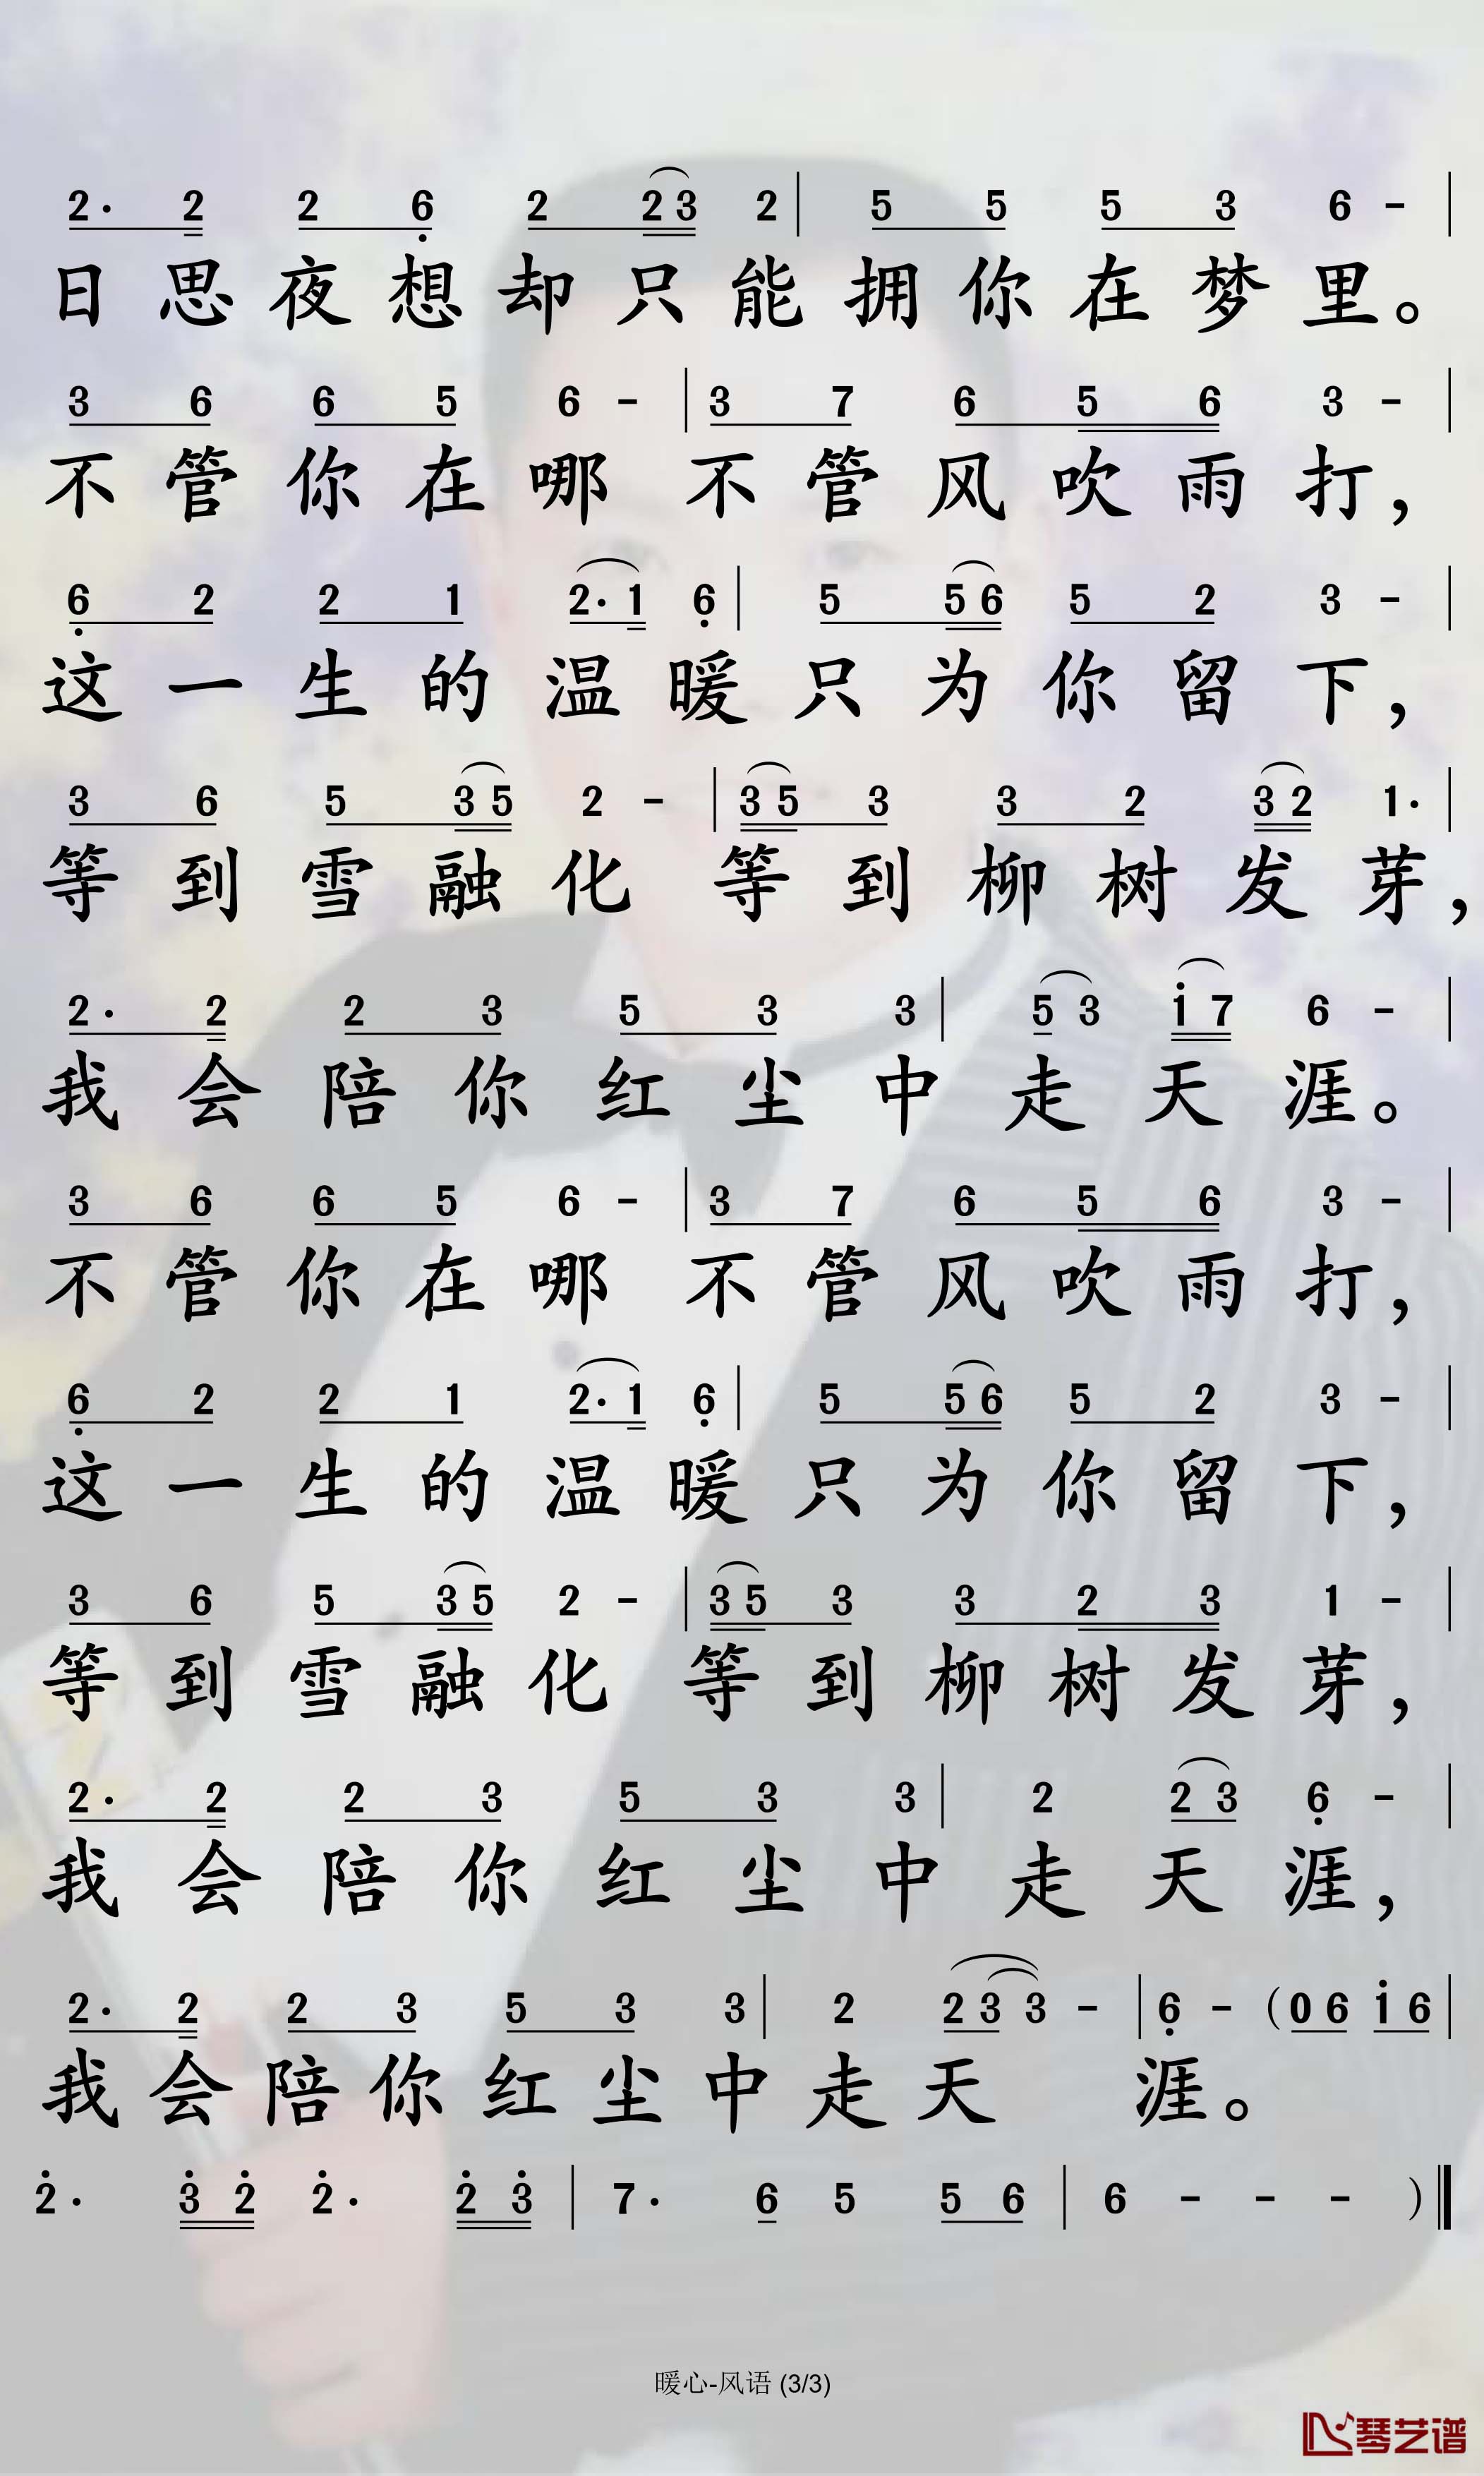 2· 2 2 6 2 2 3 2 | 5 5 5 3 6 - |
日思夜想却只能拥你在梦里。
3 6 6 5 6 - | 3 7 6 5 6 3 - |
不管你在哪 不管风吹雨打，
6 2 2 1 2· 1 6 | 5 5 6 5 2 3 - |
这一生的温暖只为你留下，
3 6 5 3 5 2 - | 3 5 3 3 2 3 2 1· |
等到雪融化 等到柳树发芽，
2· 2 2 3 5 3 3 | 5 3 1 7 6 - |
我会陪你红尘中走天涯。
3 6 6 5 6 - | 3 7 6 5 6 3 - |
不管你在哪 不管风吹雨打，
6 2 2 1 2· 1 6 | 5 5 6 5 2 3 - |
这一生的温暖只为你留下，
3 6 5 3 5 2 - | 3 5 3 3 2 3 1 - |
等到雪融化 等到柳树发芽，
2· 2 2 3 5 3 3 | 2 2 3 6 - |
我会陪你红尘中走天涯，
2· 2 2 3 5 3 3 | 2 2 3 3 - | 6 - (0 6 1 6 |
我会陪你红尘中走天 涯。
2· 3 2 2· 2 3 | 7· 6 5 5 6 | 6 - - - )
暖心-风语 (3/3)
琴艺谱